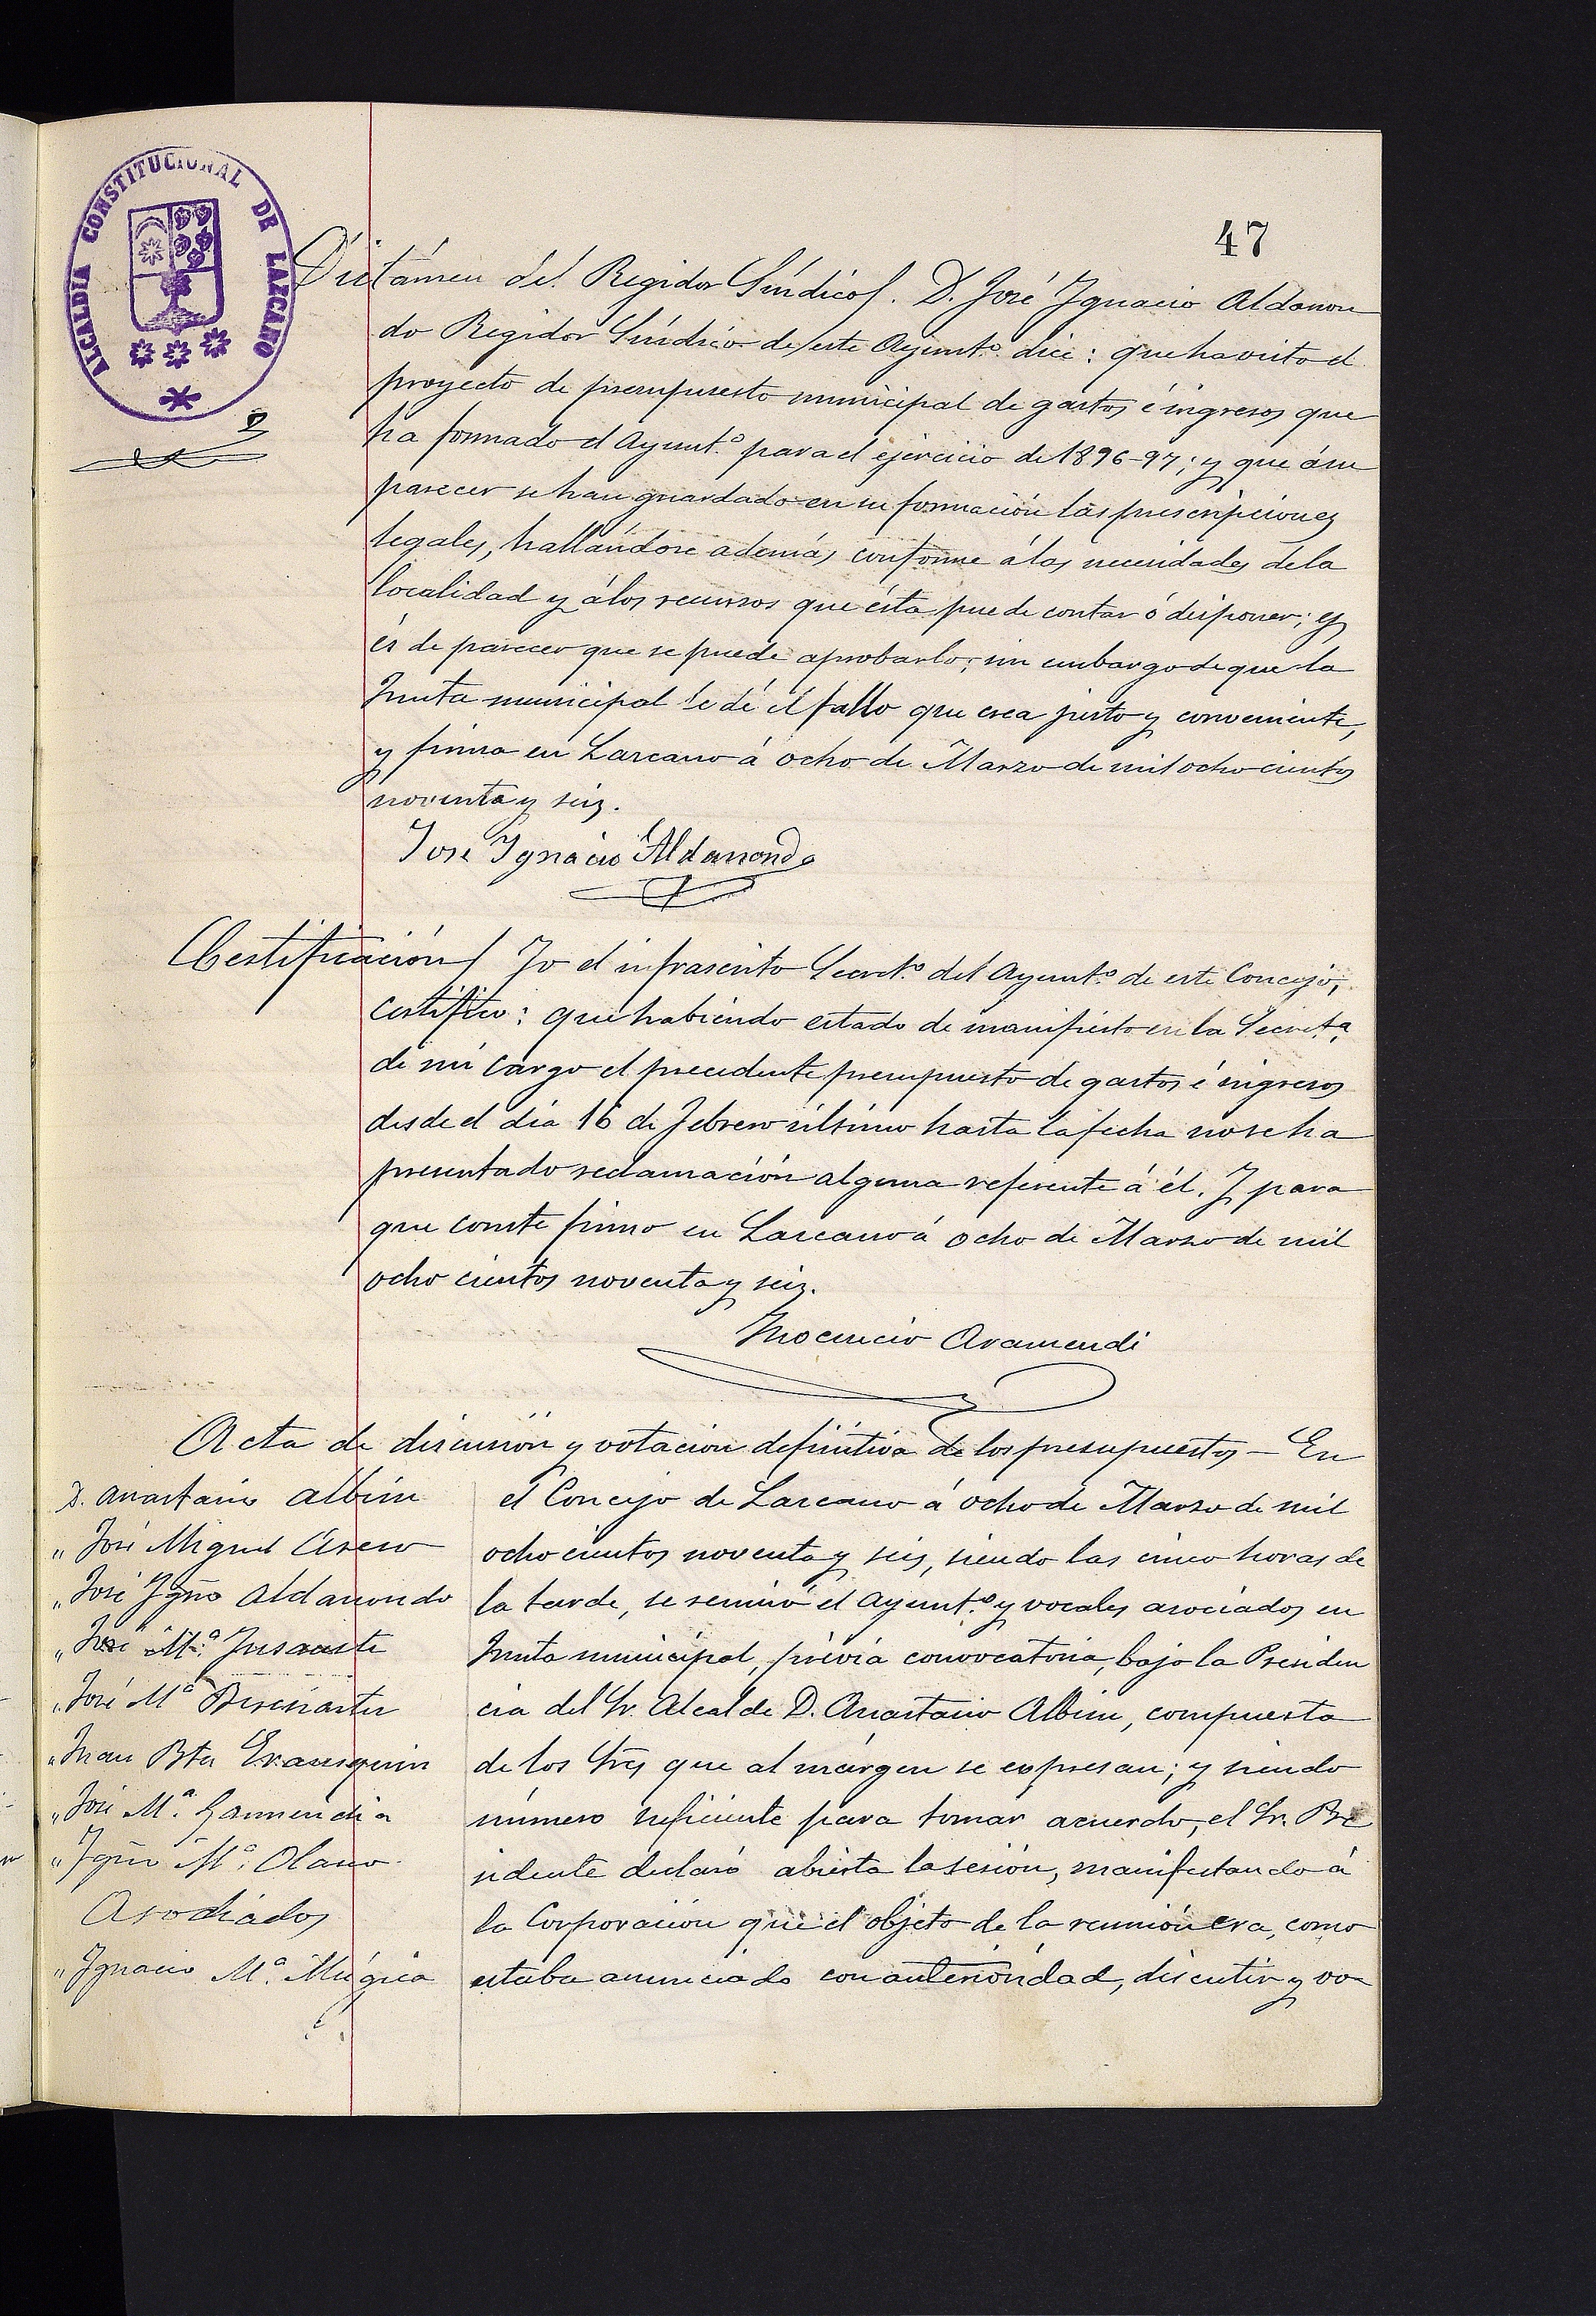 ALCALDIA CONSTITUCIONAL DE LAZCANO
47
Dictámen del Regidor Síndico/. D. José Ygnacio Aldanon
do Regidor Síndico de este Ayuntº. dice: que ha visto el
proyecto de presupuesto municipal de gastos é ingresos que
ha formado el Ayuntº. para el ejercicio de 1896-97; y que á su
parecer se han guardado en su formación las prescripciones
legales, hallándose además conforme á las necesidades de la
localidad y á los recursos que ésta puede contar ó disponer; y
és de parecer que se puede aprobarlo; sin embargo de que la
Junta municipal le dé el fallo que crea justo y conveniente,
y firma en Lazcano á ocho de Marzo de mil ocho cientos
noventa y seis.
José Ygnacio Aldanondo
Certificación/ Yo el infrascrito Secretº. del Ayuntº. de este Concejo,
certifico: que habiendo estado de manifiesto en la Secretª.
de mi cargo el precedente presupuesto de gastos é ingresos
desde el día 16 de Febrero último hasta la fecha no se ha
presentado reclamación alguna referente á él. Y para
que conste firmo en Lazcano á ocho de Marzo de mil
ocho cientos noventa y seis.
Ynocencio Aramendi
Acta de discusión y votación definitiva de los presupuestos - En
D. Anastasio Albisu
" José Miguel
" José Ygnº Aldanondo
" José Mª. Ynsausti
" José Mª
" Juan Bta Erausquin
" José Mª. Garmendia
" Ygnº Mª. Olano
Asociados
" Ygnacio Mª. Múgica
el Concejo de Lazcano á ocho de Marzo de mil
ocho cientos noventa y seis, siendo las cinco horas de
la tarde, se reunió el Ayuntº. y vocales asociados en
Junta municipal, prévia convocatoria, bajo la Presiden
cia del Sr. Alcalde D. Anastasio Albisu, compuesta
de los Sres que al márgen se expresan; y siendo
número suficiente para tomar acuerdo, el Sr. Pre
sidente declaró abierta la sesión, manifestando á
la Corporación que el objeto de la reunión era, como
estaba anunciado con anterioridad, discutir y vo-